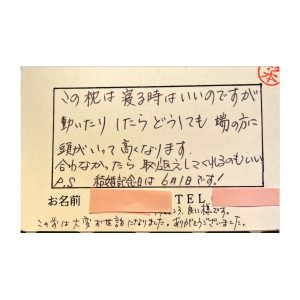 この枕は寝る時はいいのですが
動いたりしたらどうしても端の方に
頭がいって高くなります。
合わなかったら取返えしてくれるのもいい
P.S 結婚記念日は6月1日です!
お名前 TEL
良い様です。
この前は大変お世話になりました。ありがとうございました。